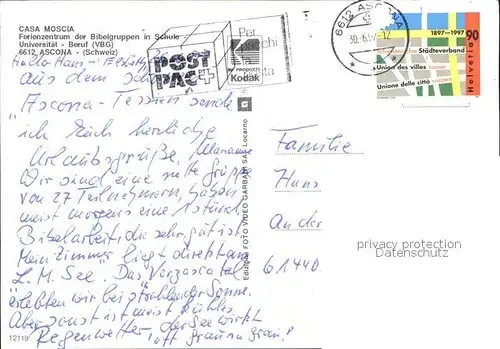 CASA MOSCIA
Ferienzentrum der Bibelgruppen in Schule
Universität - Beruf (VBG)
6612 ASCONA - (Schweiz)
Hallo Hans -
aus dem
Ascona - Tessin sende
ich Euch herzliche
Urlaubsgrüße, Marianne
Wir sind eine nette Gruppe
von 27 Teilnehmern, haben
meist morgens eine 1 stünd.
Bibelarbeit, die sehr gut ist.
Mein Zimmer liegt direkt am
L. M. See. Das Verzascatal
erlebten wir bei strahlender Sonne.
Aber sonst ist meist
Regenwetter, der See wirkt
oft grau in grau!
12119
Edizione FOTO VIDEO GARBANI SA, Locarno
POST
PAC+
Per
pacchi
PRODOTTI
Kodak
6612 ASCONA
30.-6.97-12
1897-1997
90
Helvetia
Schweizerischer Städteverband
Union des villes suisses
Unione delle città svizzere
Familie
Hans
An der
61440
privacy protection
Datenschutz